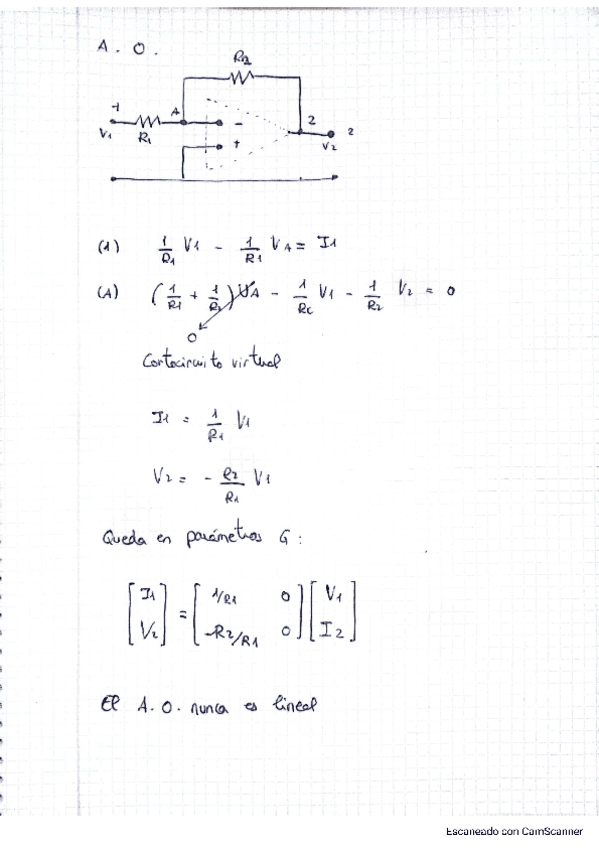 A. O.
R2
1
A
2
2
V1
R1
-
+
V2
(1) 1/R1 V1 - 1/R1 VA = I1
(A) (1/R1 + 1/R2) VA - 1/R1 V1 - 1/R2 V2 = 0
0
Cortocircuito virtual
I1 = 1/R1 V1
V2 = - R2/R1 V1
Queda en parámetros G:
[I1 V2] = [1/R1 0 -R2/R1 0] [V1 I2]
El A.O. nunca es lineal
Escaneado con CamScanner